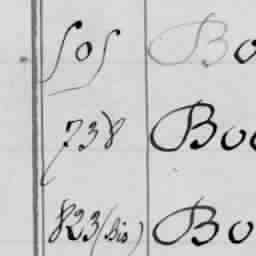 505 Bo
738 Boo
823 (bis) Bo